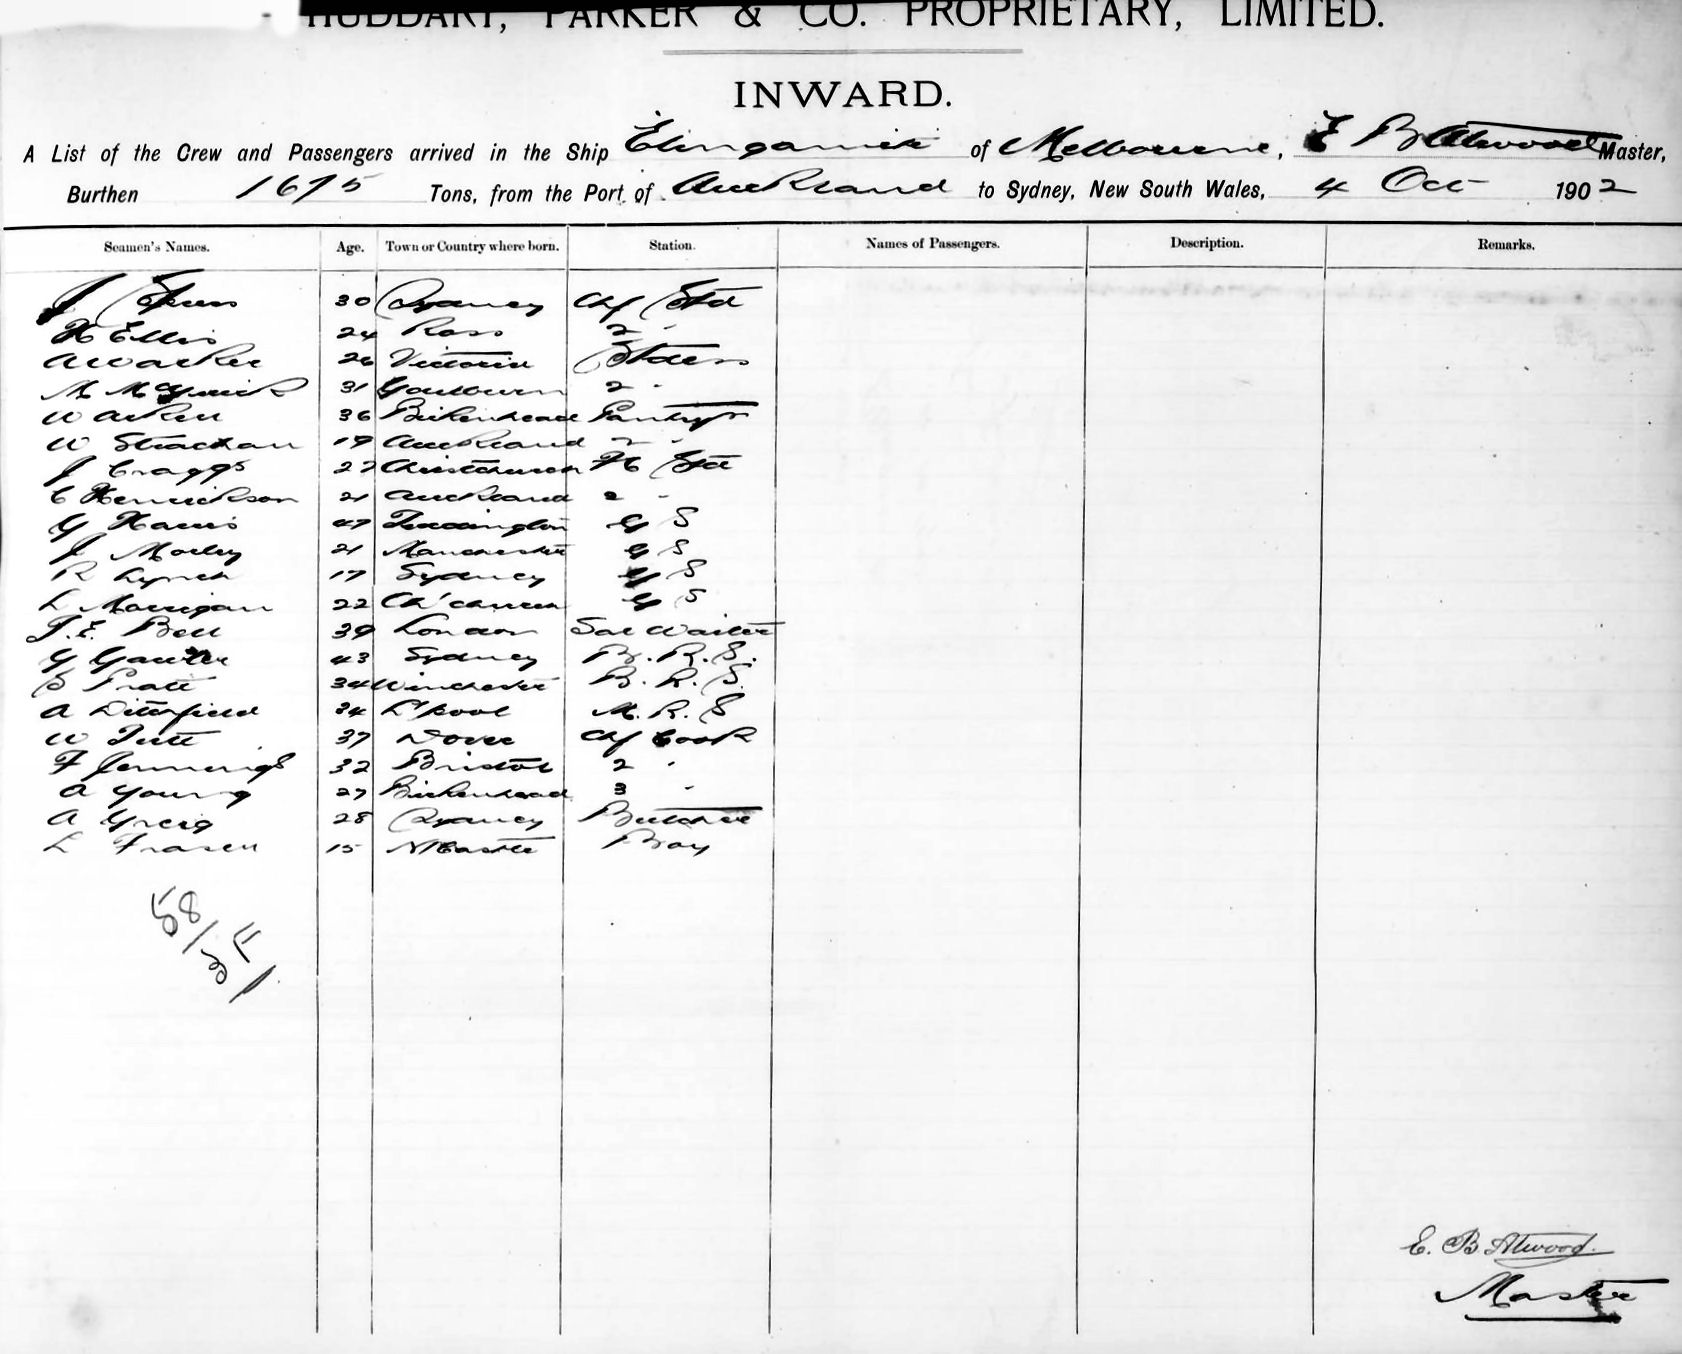 HUDDART, PARKER & CO. PROPRIETARY, LIMITED.
INWARD.
A List of the Crew and Passengers arrived in the Ship Elingamite of Melbourne, E B Attwood Master,
Burthen 1675 Tons, from the Port of Auckland to Sydney, New South Wales, 4 Oct 1902
Seamen's Names. Age. Town or Country where born. Station. Names of Passengers. Description. Remarks.
J 30 Sydney Chf Std
H Ellis 24 Ross 2 "
A Walker 26 Victoria Stdess
M 31 Goulburn 2 "
W 36 Birkenhead
W Strachan 19 Auckland 2 "
J Craggs 27 Christchurch F C Std
C Henrickson 21 Auckland 2 "
G Harris 47 G S
J Morley 21 Manchester G S
R Lynch 17 Sydney G S
L 22 Ch'church G S
T. E. Bell 39 London Sal Waiter
G 43 Sydney B. R. S.
S Pratt 34 Winchester B. R. S.
A 34 L'pool M. R. S
W 37 Dover Chf Cook
F Jennings 32 Bristol 2 "
A Young 27 Birkenhead 3 "
A Greig 28 Sydney Butcher
L Fraser 15 N'Castle Boy
58/
E. B. Attwood.
Master